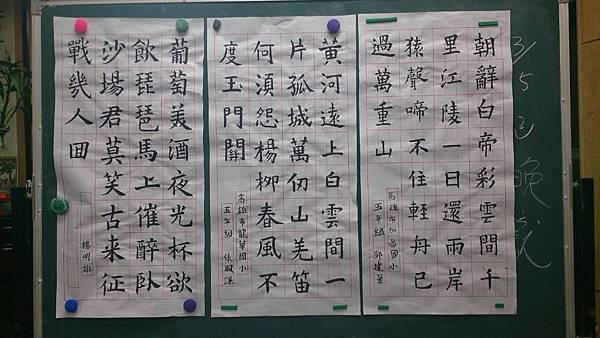 朝辭白帝彩雲間千
里江陵一日還兩岸
猿聲啼不住輕舟已
過萬重山
高雄市加昌國小
五年級
黃河遠上白雲間一
片孤城萬仞山羌笛
何須怨楊柳春風不
度玉門關
高雄市龍華國小
五年級
葡萄美酒夜光杯欲
飲琵琶馬上催醉臥
沙場君莫笑古来征
戰幾人回
楊明雄
3/5
晚